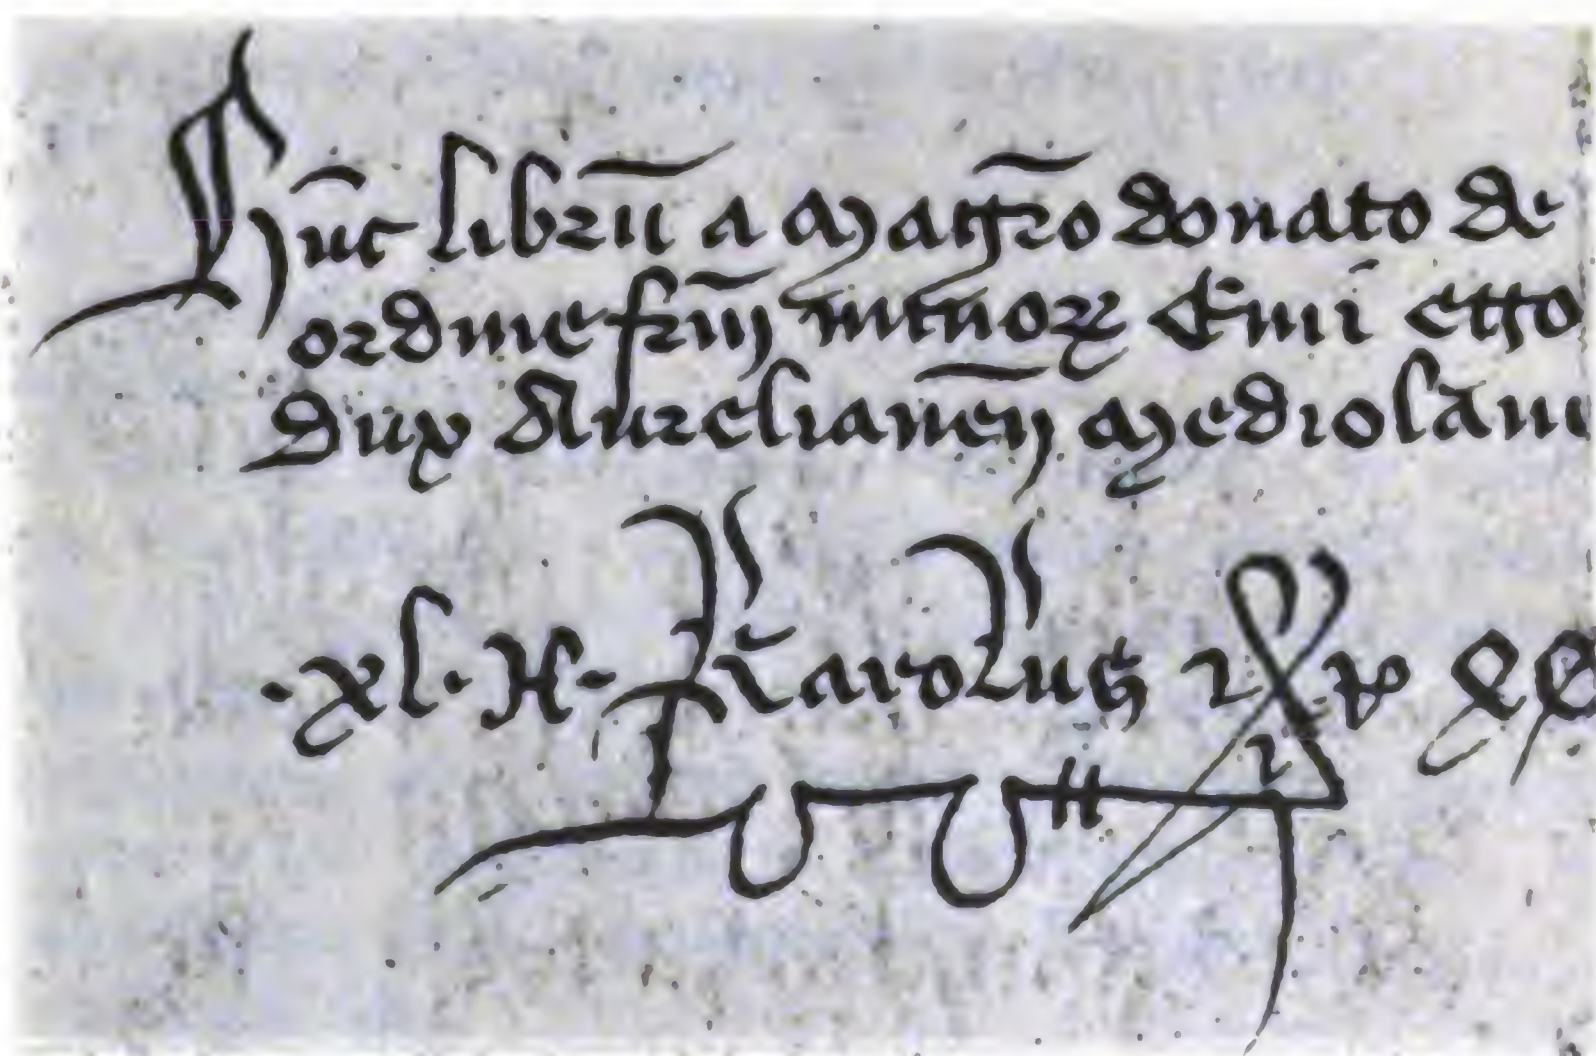 Hūc librū a magr̄o donato de
ordine fr̄m mīnorꝝ Emi ego
dux Aurelianen̄ mediolani
.xl. H. Karolus